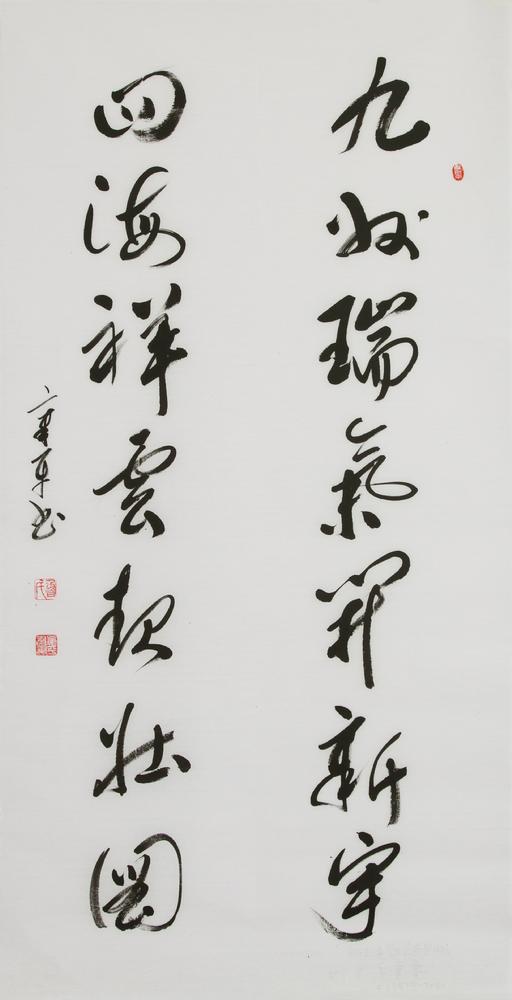 九州瑞氣開新宇
四海祥雲起壯圖
书